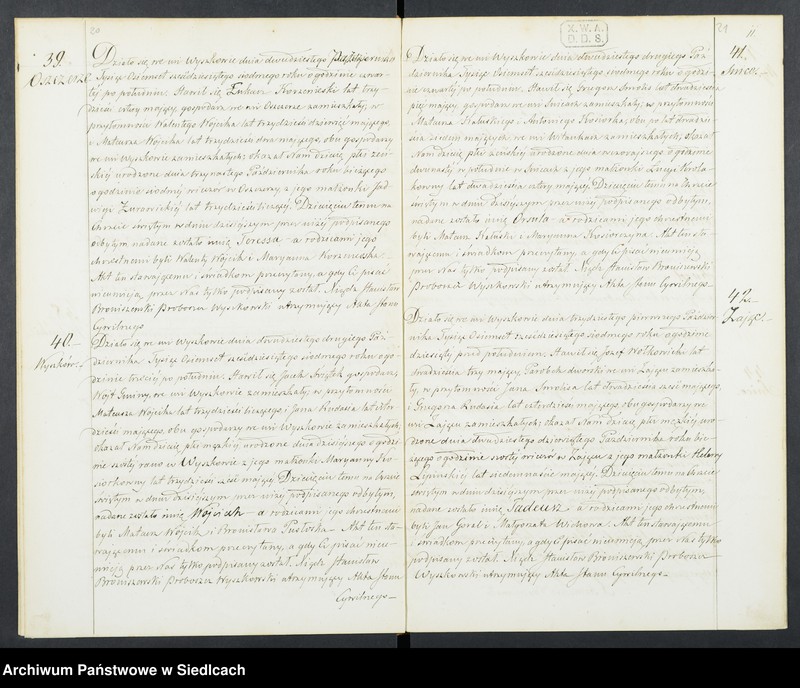 20
39.
Działo się we wsi Wyszkowie dnia dwudziestego Października
Tysiąc Ośmset sześćdziesiątego siódmego roku o godzinie czwar-
tej po południu. Stawił się Łukasz Korzeniecki lat trzy-
dzieści cztery mający, gospodarz we wsi zamieszkały, w
przytomności Walentego Wójcika lat trzydzieści dziewięć mającego,
i Mateusza Wójcika lat trzydzieści dwa mającego, obu gospodarzy
we wsi Wyszkowie zamieszkałych; okazał Nam dziecię płci żeń-
skiej urodzone dnia trzynastego Października roku bieżącego
o godzinie siódmej wieczór w z jego małżonki Jad-
wigi lat trzydzieści liczącej. Dziecięciu temu na
Chrzcie świętym w dniu dzisiejszym przez niżej podpisanego
odbytym nadane zostało imię Teressa a rodzicami jego
chrzestnemi byli Walenty Wójcik i Maryanna
Akt ten stawającemu i świadkom przeczytany, a gdy Ci pisać
nieumieją, przez Nas tylko podpisany został. Xiądz Stanisław
Broniszewski Proboszcz Wyszkowski utrzymujący Akta Stanu
Cywilnego
40.
Działo się we wsi Wyszkowie dnia dwudziestego drugiego Paź-
dziernika Tysiąc Ośmset sześćdziesiątego siódmego roku o go-
dzinie trzeciej po południu. Stawił się Jacek gospodarz,
Wójt Gminy, we wsi Wyszkowie zamieszkały, w przytomności
Mateusza Wójcika lat trzydzieści liczącego i Jana Rudasia lat
dzieści mającego, obu gospodarzy we wsi Wyszkowie zamieszkałych;
okazał Nam dziecię płci męzkiej urodzone dnia dzisiejszego o godzi-
nie szóstej rano w Wyszkowie z jego małżonki Maryanny Ko-
siorkowny lat trzydzieści sześć mającej. Dziecięciu temu na Chrzcie
świętym w dniu dzisiejszym przez niżej podpisanego odbytym,
nadane zostało imię Wojciech a rodzicami jego chrzestnemi
byli Mateusz Wójcik i Bronisława Akt ten sta-
wającemu i świadkom przeczytany, a gdy Ci pisać nieu-
mieją przez Nas tylko podpisany został. Xiądz Stanisław
Broniszewski Proboszcz Wyszkowski utrzymujący Akta Stanu
Cywilnego
K.W.A.
D.D.S.
21
11
41.
Działo się we wsi Wyszkowie dnia dwudziestego drugiego Paź-
dziernika Tysiąc Ośmset sześćdziesiątego siódmego roku o godzi-
nie czwartej po południu. Stawił się Grzegorz Smolis lat dwadzieścia
pięć mający, gospodarz we wsi zamieszkały; w przytomności
Mateusza Kałuskiego i Antoniego Kosiorka, obu po lat dwadzie-
ścia siedm mających we wsi zamieszkałych; okazał
Nam dziecię płci żeńskiej urodzone dnia wczorajszego o godzinie
dwunastej w południe w z jego małżonki Łucyi
lat dwadzieścia cztery mającej. Dziecięciu temu na Chrzcie
świętym w dniu dzisiejszym przez niżej podpisanego odbytym,
nadane zostało imię Orsula a rodzicami jego chrzestnemi
byli Mateusz Kałuski i Maryanna Kosiorczyna. Akt ten sta-
wającemu i świadkom przeczytany, a gdy Ci pisać nieumieją
przez Nas tylko podpisany został. Xiądz Stanisław Broniszewski
Proboszcz Wyszkowski utrzymujący Akta Stanu Cywilnego
42.
Zając
Działo się we wsi Wyszkowie dnia trzydziestego pierwszego Paździer-
nika Tysiąc Ośmset sześćdziesiątego siódmego roku o godzinie
dziesiątej przed południem. Stawił się Józef Wółkowicki lat
dwadzieścia trzy mający Parobek dworski we wsi Zającu zamieszka-
ły, w przytomności Jana Smolisa lat dwadzieścia sześć mającego,
i Grzegorza Rudasia lat czterdzieści mającego obu gospodarzy we
wsi Zającu zamieszkałych; okazał Nam dziecię płci męzkiej uro-
dzone dnia dwudziestego dziewiątego Października roku bie-
żącego o godzinie szóstej wieczór w Zającu z jego małżonki Heleny
Lipińskiej lat siedemnaście mającej. Dziecięciu temu na Chrzcie
świętym w dniu dzisiejszym przez niżej podpisanego odbytym,
nadane zostało imię Tadeusz a rodzicami jego chrzestnemi
byli Jan Goral i Małgorzata Wichowa. Akt ten stawającemu
i świadkom przeczytany, a gdy Ci pisać nieumieją, przez Nas tylko
podpisany został. Xiądz Stanisław Broniszewski Proboszcz
Wyszkowski utrzymujący Akta Stanu Cywilnego
Archiwum Państwowe w Siedlcach